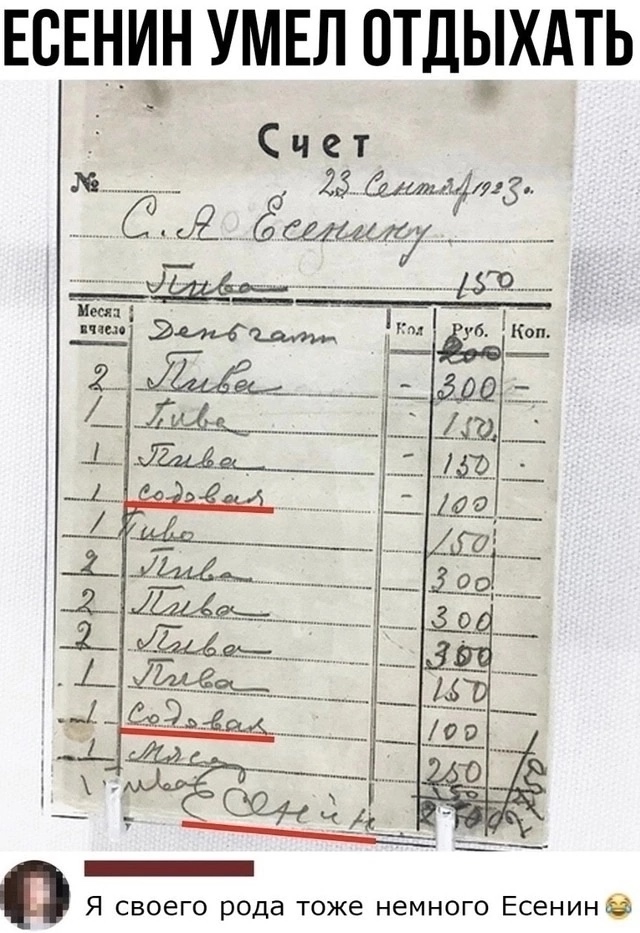 ЕСЕНИН УМЕЛ ОТДЫХАТЬ
Счет
№ 23 Сентября 1923г.
С. А Есенину
Пива 150
Месяц и число Деньгами Кол Руб. Коп.
2 Пива - 300 -
1 Пива - 150
1 Пива - 150 -
1 Содовая - 100
1 Пиво 150
2 Пива 300
2 Пива 300
2 Пива 300
1 Пива 150
1 Содовая 100
1 Мясо 250
1 Пива 150
Есенин
Я своего рода тоже немного Есенин😂